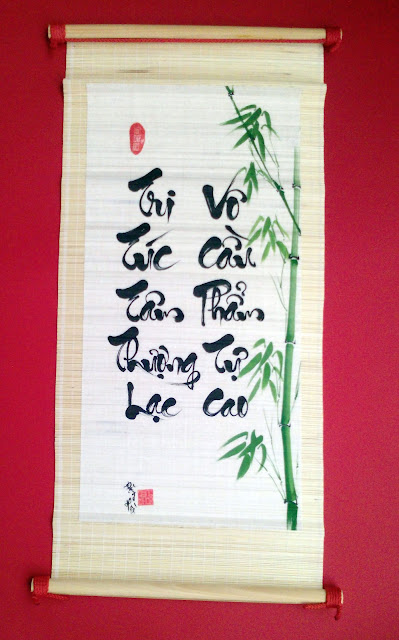 Tri
Túc
Tâm
Thường
Lạc
Vô
Cầu
Phẩm
Tự
Cao